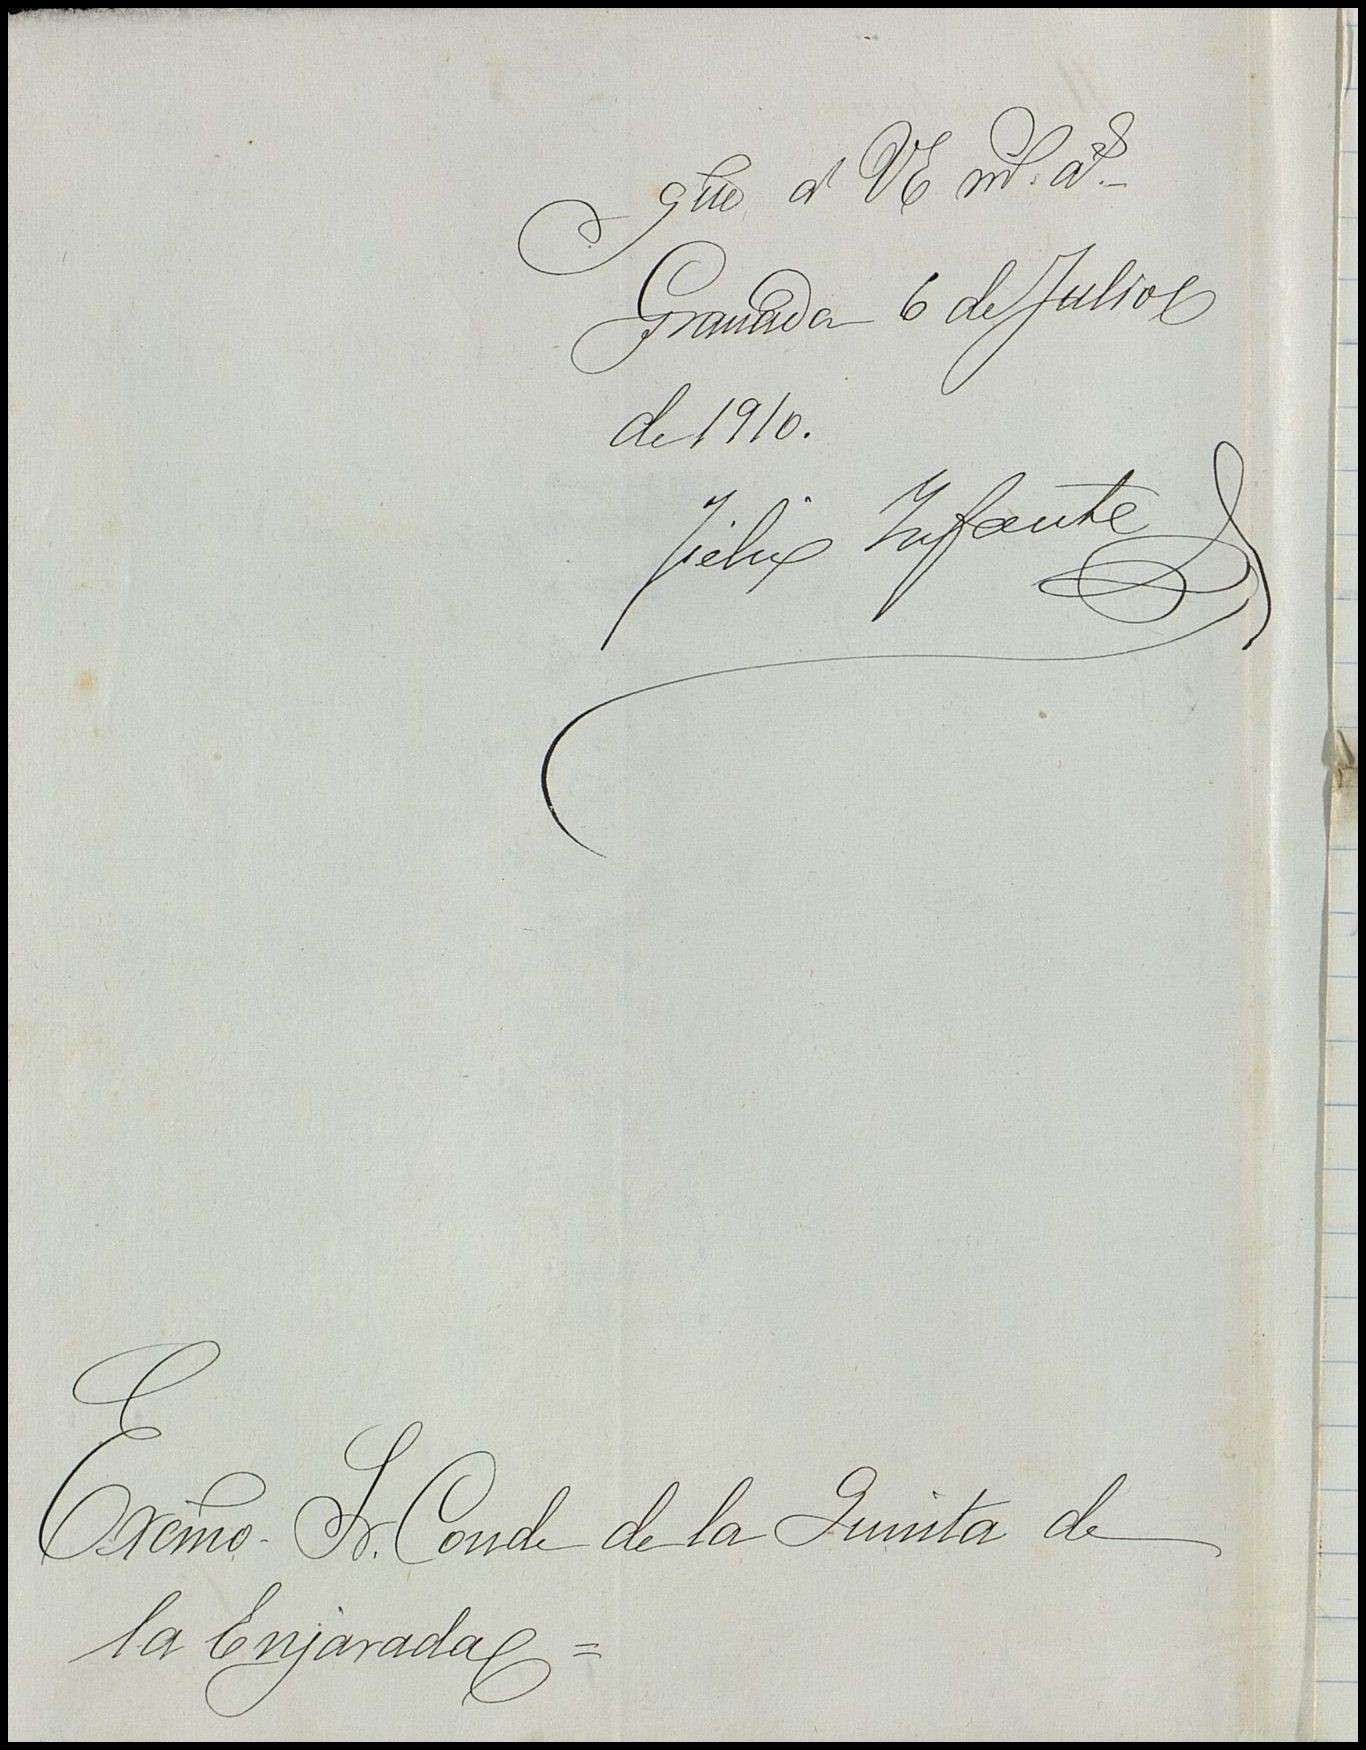 gue á VE m.s a.s
Granada 6 de Julio
de 1910.
Félix Infante
Excmo. Sr. Conde de la Quinta de
la Enjarada =